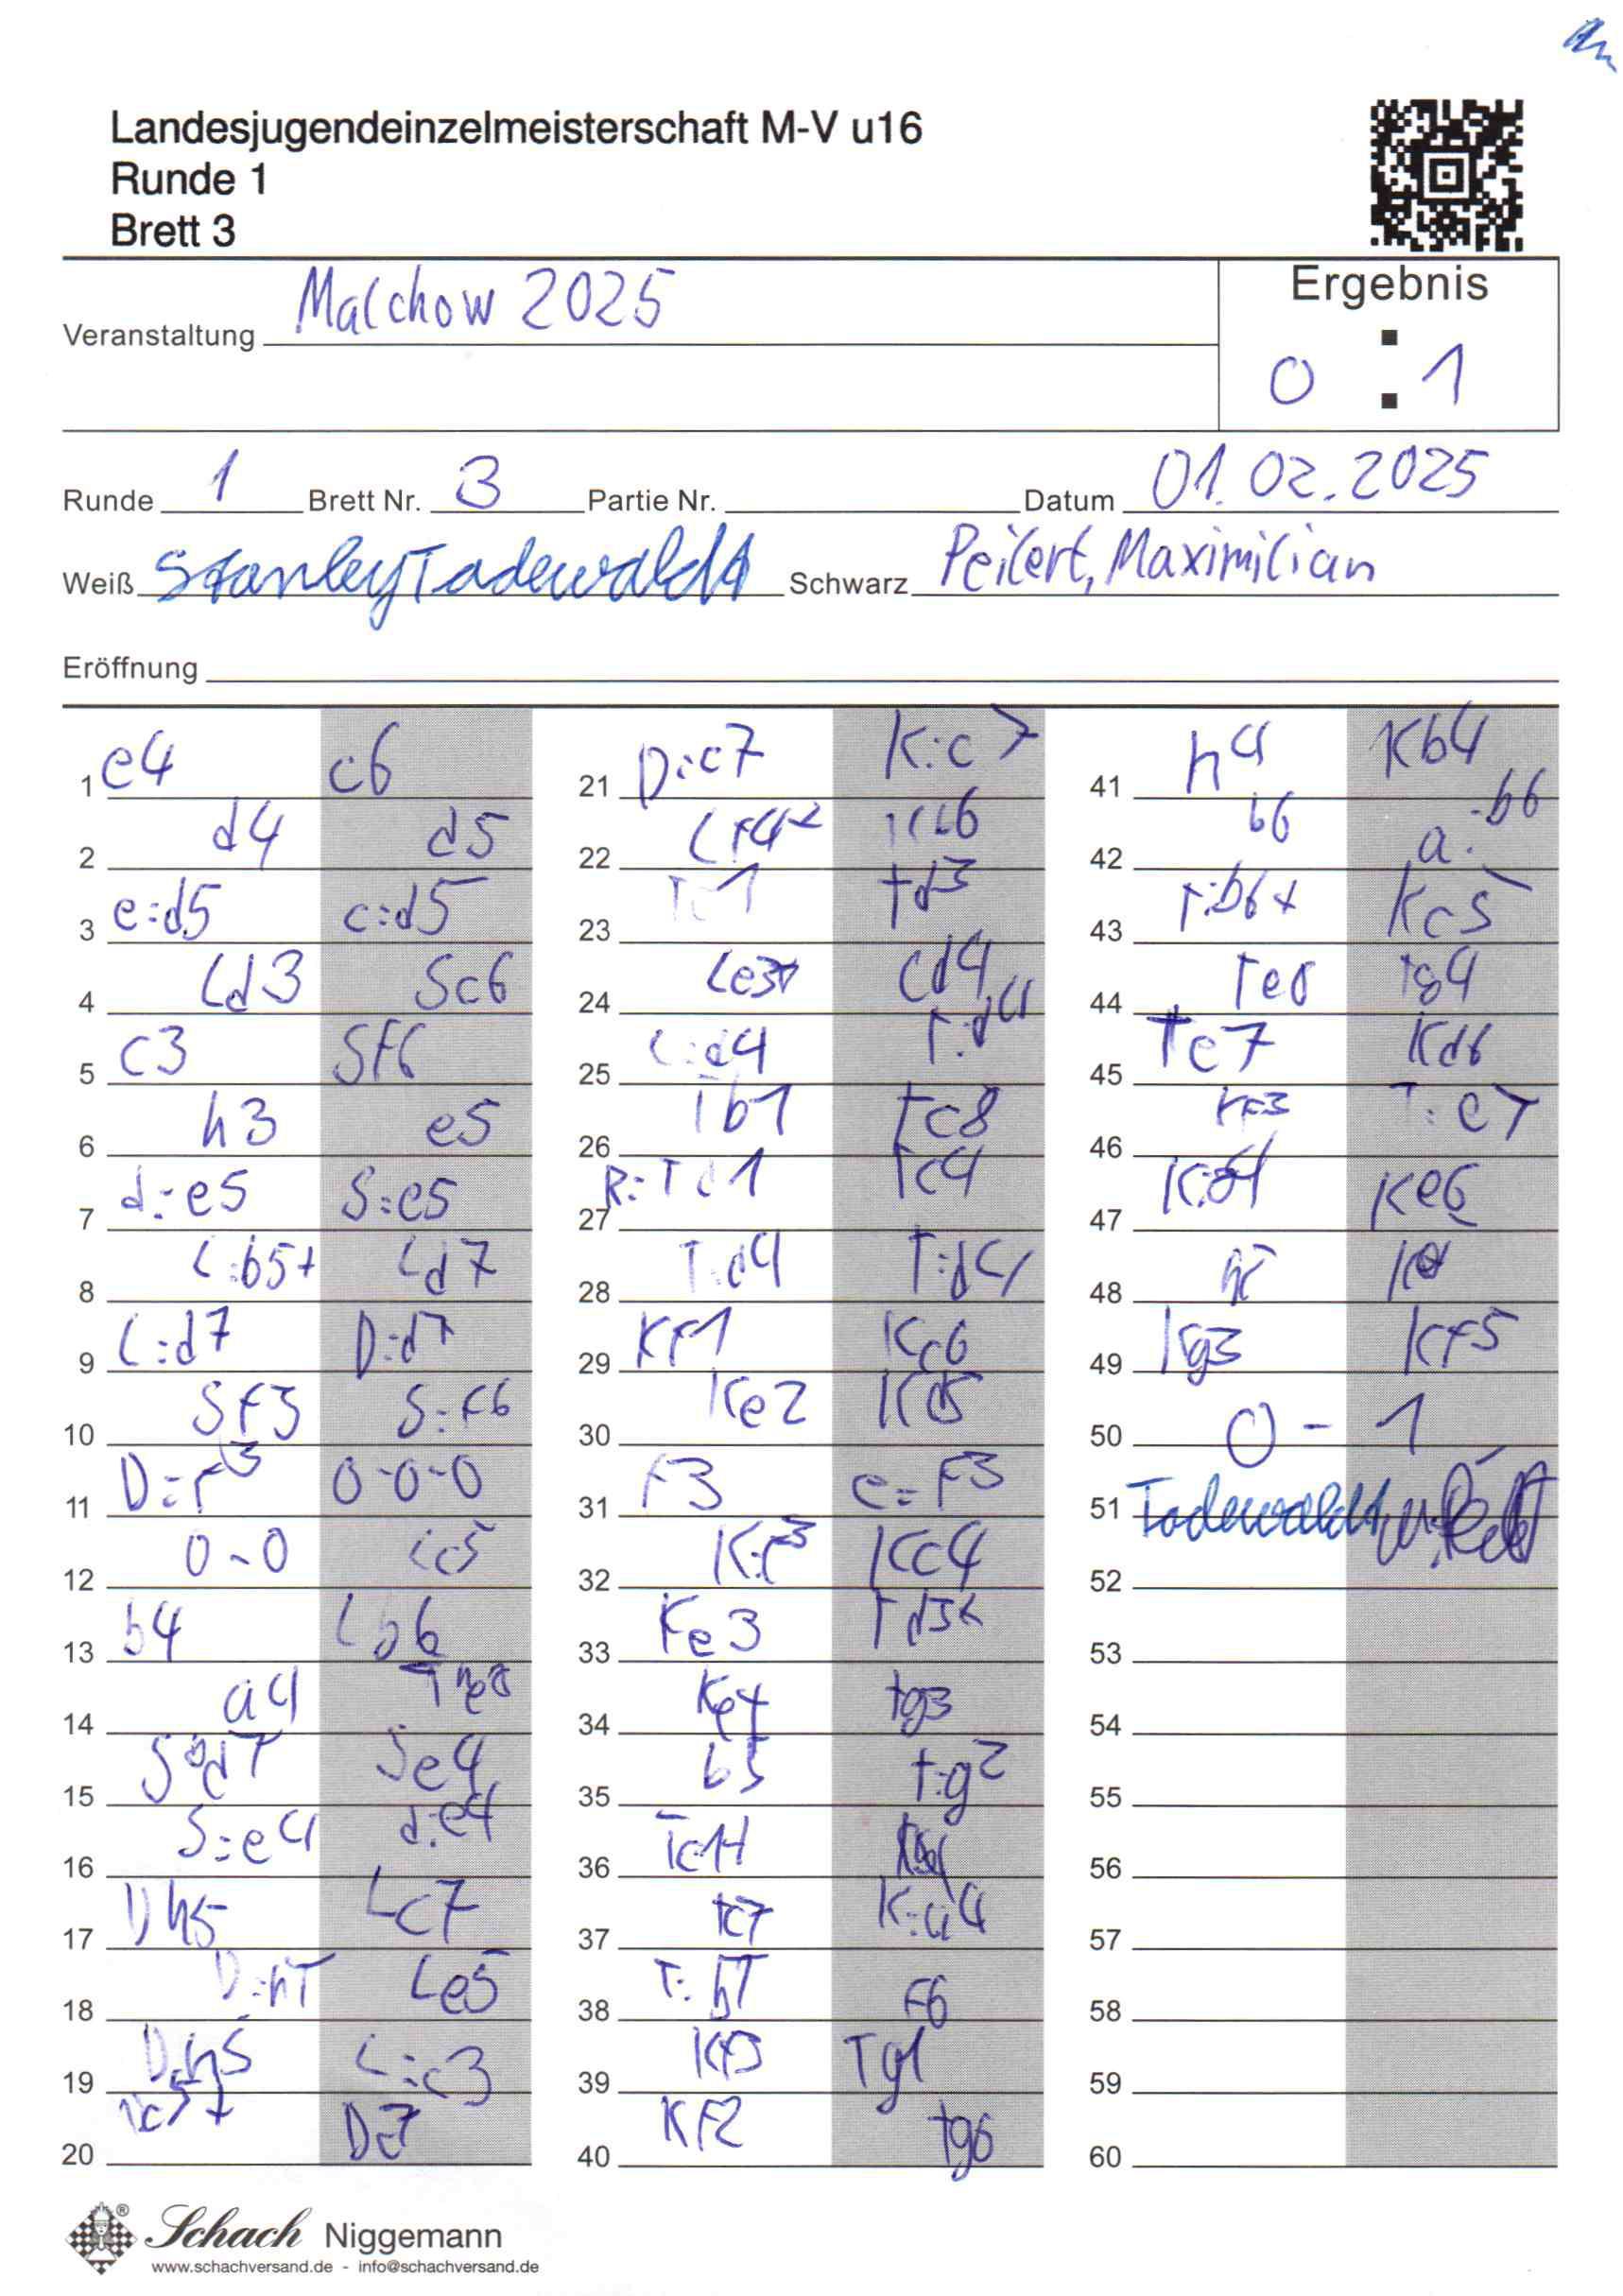 Landesjugendeinzelmeisterschaft M-V u16
Runde 1
Brett 3
Veranstaltung Malchow 2025
Ergebnis
0 : 1
Runde 1 Brett Nr. 3 Partie Nr. Datum 01.02.2025
Weiß Stanley Tadewaldt Schwarz Peilert, Maximilian
Eröffnung
1 e4 c6
2 d4 d5
3 e:d5 c:d5
4 Ld3 Sc6
5 c3 Sf6
6 h3 e5
7 d:e5 S:e5
8 L:b5+ Ld7
9 L:d7 D:d7
10 Sf3 S:f6
11 D:f3 0-0-0
12 0-0 Lc5
13 b4 Lb6
14 a4 The8
15 Sbd7 Se4
16 S:e4 d:e4
17 Dh5 Lc7
18 D:h7 Le5
19 D:h5 L:c3
20 Dc5+ Dc7
21 D:c7 K:c7
22 Lf4+ Kb6
23 Tc1 Td3
24 Le3+ Ld4
25 L:d4 T:d4
26 Tb1 Tc8
27 R:Td1 Tc4
28 T:d4 T:d4
29 Kf1 Kc6
30 Ke2 Kd5
31 f3 e:f3
32 K:f3 Kc4
33 Ke3 Td3+
34 Ke4 Tg3
35 b5 T:g2
36 Tc1+
37 Tc7 K:a4
38 T:b7 f6
39 Kf3 Tg1
40 Kf2 Tg6
41 h4 Kb4
42 b6 a:b6
43 T:b6+ Kc5
44 Te6 Tg4
45 Te7 Kd6
46 Kf3 T:e7
47 K:g4 Ke6
48 h5
49 Kg3 Kf5
50 0 - 1
51 Tadewaldt
52
53
54
55
56
57
58
59
60
Schach Niggemann
www.schachversand.de - info@schachversand.de